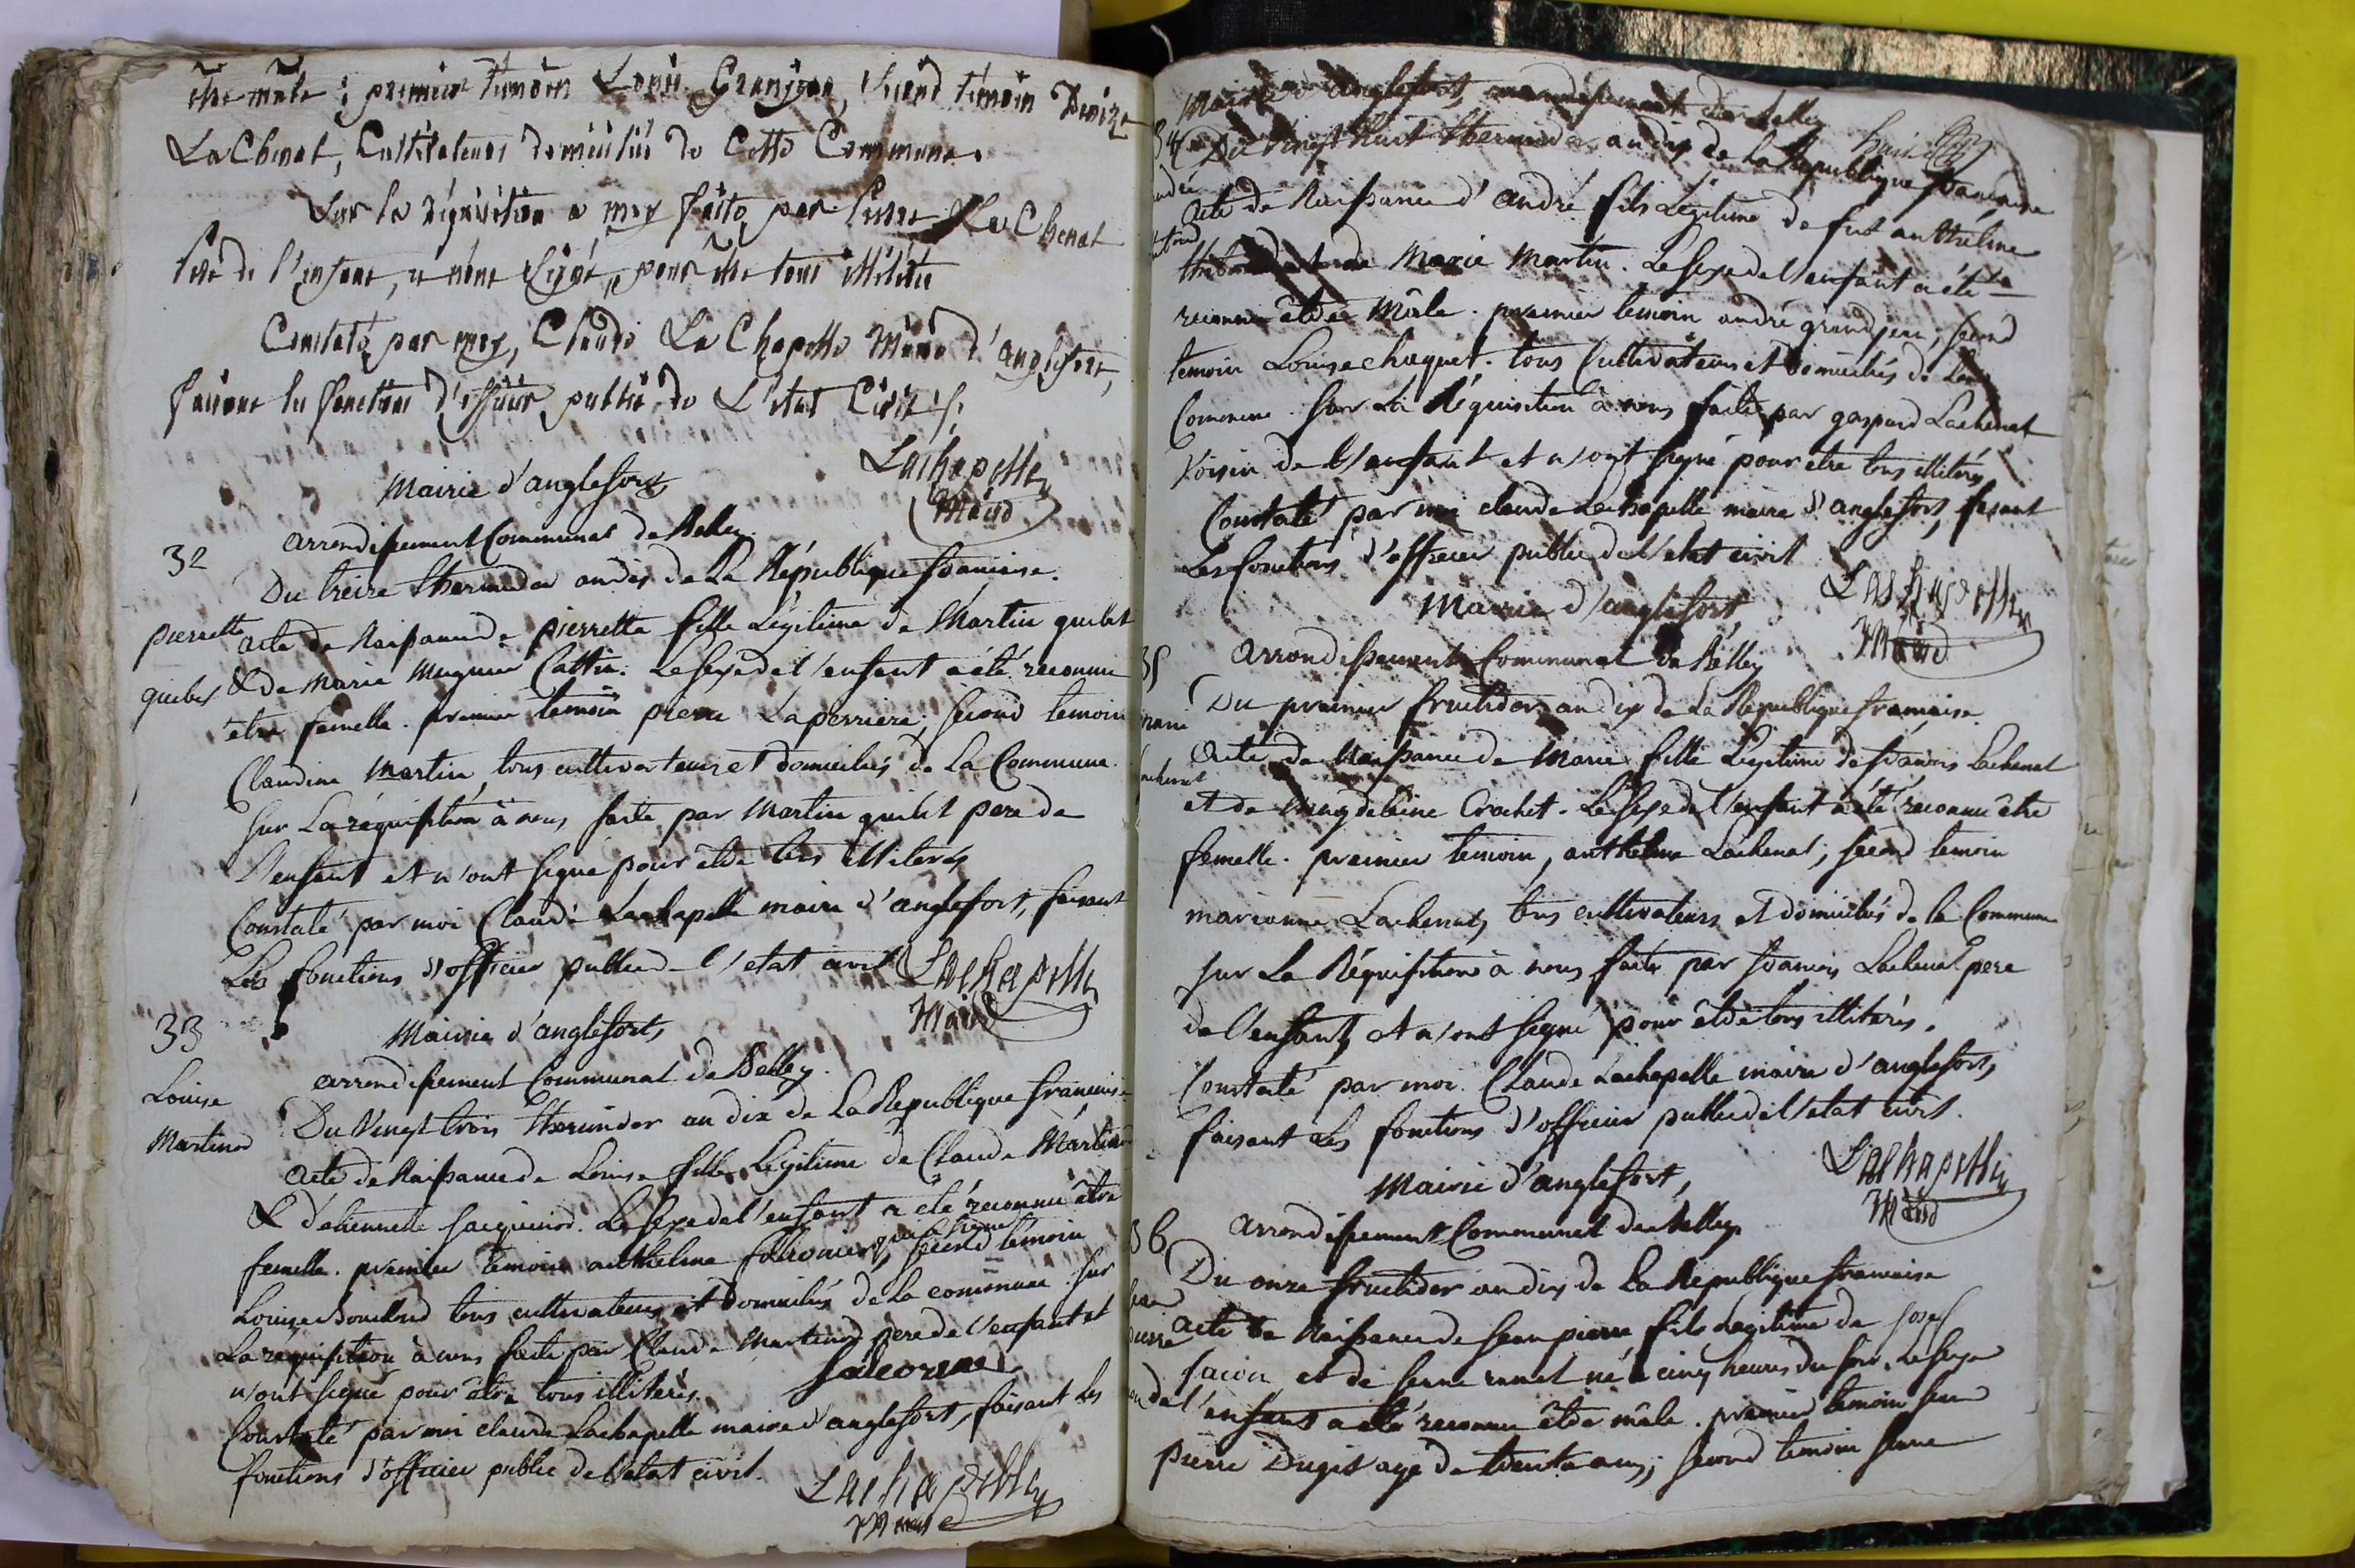 être mâle ; premier temoin Louis Granjean, second temoin Denize
La Chenat, Cultivateurs domiciliés de Cette Commune.
Sur la réquisition a moy faite par Pierre La Chenat
Père de l'enfant, n'ont Signé, pour être tous illitérés
Constaté par moy, Claude La Chapelle Maire d'anglefort,
faisant les fonctions d'officier public de L'état Civil
Lachapelle
Maire
Mairie d'anglefort
arrondissement Communal de Belley
32
Du treize thermidor an dix de La République francaise.
pierrette
acte de Naissance de pierrette fille Légitime de Martin quibet
quibet
& de Marie Mugnier Cattin. Le sexe de l'enfant a été reconnu
etre femelle. premier temoin pierre Laperriere ; second temoin
Claudine Martin, tous cultivateurs et domiciliés de La Commune.
sur La requisition à nous faite par Martin quibet pere de
l'enfant et n'ont signé pour etre tous illiterés
Constaté par moi Claude Lachapelle maire d'anglefort, faisant
Les fonctions d'officier public de l'etat civil
Lachapelle
Maire
33
Mairie d'anglefort
arrondissement Communal de Belley.
Louise
Martinod
Du Vingt trois thermidor an dix de La Republique francaise
acte de Naissance de Louise fille Légitime de Claude Martinod
& d'etiennette Jacquinod. Le sexe de l'enfant a été reconnu être
femelle. premier temoin anthelme falconier qui a signé, second temoin
Louise tous cultivateurs et Domiciliés de La commune. Sur
La requisition à nous faite par Claude Martinod pere de l'enfant et
n'ont signé pour être tous illiterés.
Constaté par moi claude Lachapelle maire d'anglefort, faisant les
fonctions d'officier public de l'etat civil.
Lachapelle
Maire
Mairie d'anglefort, arrondissement de Belley
34
Du Vingt huit thermidor an dix de La Republique francaise
acte de Naissance d'andré fils Légitime de fut anthelme
et de Marie Martin. Le sexe de l'enfant a été
reconnu être Mâle. premier temoin andré grandjean, second
temoin Louise chaquet. tous Cultivateurs et Domiciliés de La
Commune. Sur La Réquisition à nous faite par gaspard Lachenat
Voisin de l'enfant et n'ont signé pour être tous illiterés
Constaté par moi claude Lachapelle maire d'anglefort, fesant
Les fonctions d'officier public de l'etat civil
Lachapelle
Maire
Mairie d'anglefort,
35
arrondissement Communal de Belley
Du premier fructidor, an dix de La Republique francaise.
Acte de Naissance de Marie fille Légitime de francois Lachenat
et de Magdeleine Crochet. Le sexe de l'enfant a été reconnu être
femelle. premier temoin, anthelme Lachenat ; second temoin
marianne Lachenat, tous cultivateurs et domiciliés de la Commune
sur La Réquisition à nous faite par francois Lachenat pere
de l'enfant, et n'ont signé pour être tous illiterés.
Constaté par moi Claude Lachapelle maire d'anglefort,
faisant Les fonctions d'officier public de l'etat civil.
Lachapelle
Maire
Mairie d'anglefort,
36
arrondissement Communal de Belley
Du onze fructidor an dix de La Republique francaise
acte de Naissance de Jean pierre fils Legitime de Josef
et de Jeanne né à cinq heures du soir. Le sexe
de l'enfant a été reconnu être mâle. premier temoin Jean
Pierre Dugit agé de trente ans ; second temoin Jeanne